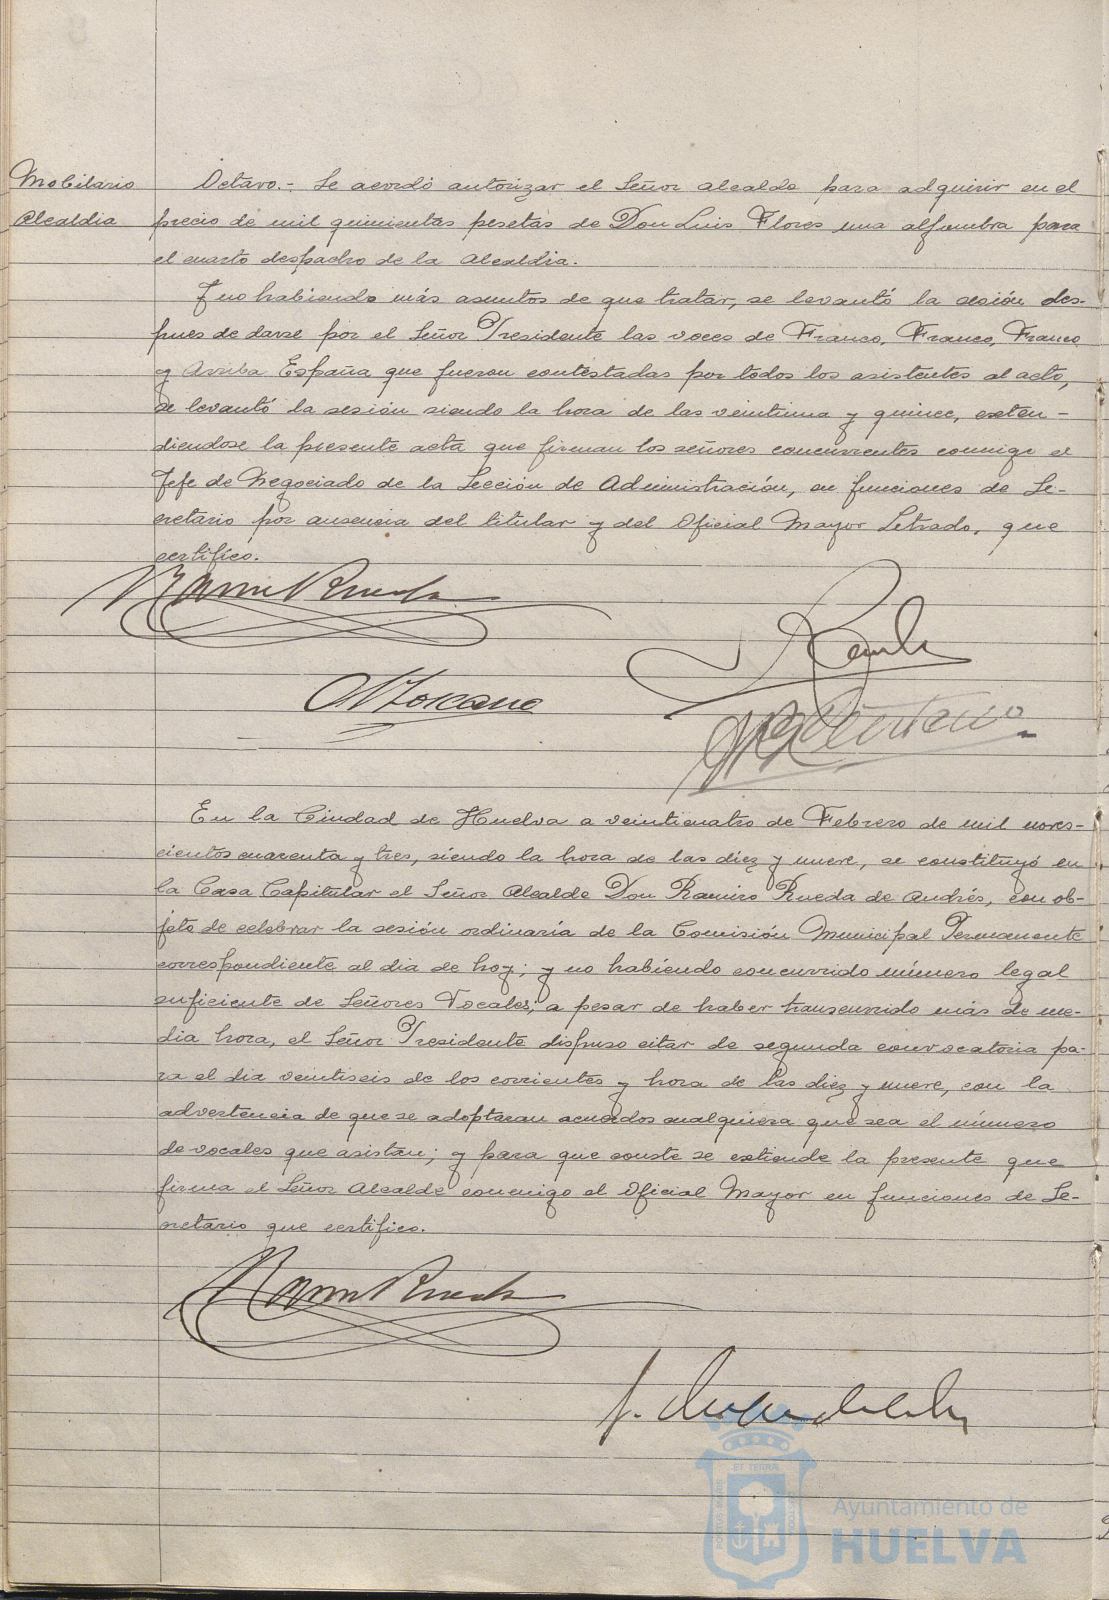 Mobiliario
Alcaldia
Octavo.- Se acordó autorizar el Señor Alcalde para adquirir en el
precio de mil quinientas pesetas de Don Luis Flores una alfombra para
el cuarto despacho de la Alcaldia.
Y no habiendo más asuntos de que tratar, se levantó la sesión des-
pues de darse por el Señor Presidente las voces de Franco, Franco, Franco
y Arriba España que fueron contestadas por todos los asistentes al acto,
se levantó la sesión siendo la hora de las veintiuna y quince, exten-
diendose la presente acta que firman los señores concurrentes conmigo el
Jefe de Negociado de la Sección de Administración, en funciones de Se-
cretario por ausencia del titular y del Oficial Mayor Letrado, que
certifico.
Ramiro Rueda
En la Ciudad de Huelva a veinticuatro de Febrero de mil noves-
cientos cuarenta y tres, siendo la hora de las diez y nueve, se constituyó en
la Casa Capitular el Señor Alcalde Don Ramiro Rueda de Andrés, con ob-
jeto de celebrar la sesión ordinaria de la Comisión Municipal Permanente
correspondiente al dia de hoy; y no habiendo concurrido número legal
suficiente de Señores Vocales, a pesar de haber transcurrido más de me-
dia hora, el Señor Presidente dispuso citar de segunda convocatoria pa-
ra el dia veintiseis de los corrientes y hora de las diez y nueve, con la
advertencia de que se adoptaran acuerdos cualquiera que sea el número
de vocales que asistan; y para que conste se extiende la presente que
firma el Señor Alcalde conmigo el Oficial Mayor en funciones de Se-
cretario que certifico.
Ramiro Rueda
Ayuntamiento de
HUELVA